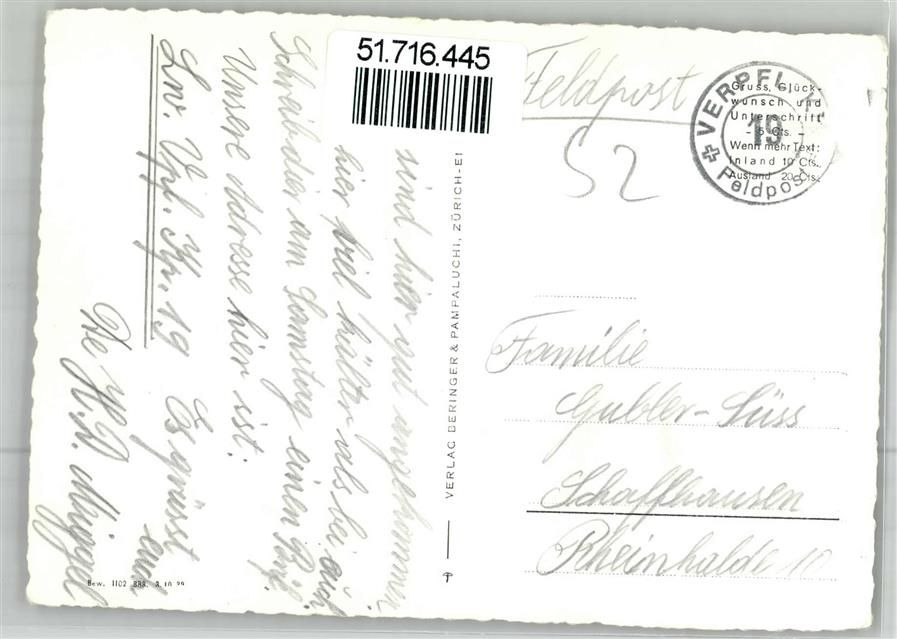 51.716.445
Feldpost
52
VERPFL.
19
Feldpost
Gruss, Glück-
wunsch und
Unterschrift
- 5 Cts. -
Wenn mehr Text:
Inland 10 Cts.
Ausland 20 Cts.
sind hier gut angekommen
hier viel kälter als bei euch
Schreib dier am Samstag einen Brief.
Unsere Adresse hier ist:
Lw. Vpf. Kp. 19
Es grüsst euch
VERLAG BERINGER & PAMPALUCHI, ZÜRICH-EI
Familie
Gubler-Süss
Schaffhausen
Rheinhalde 10
Bew. 1102 BRB. 3.10.39